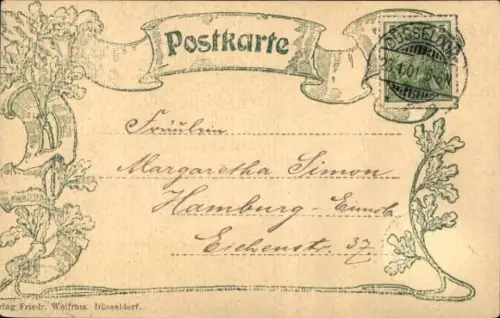 Postkarte
DÜSSELDORF
01
Fräulein
Margaretha Simon
Hamburg - Eimsb
Eichenstr. 37
Verlag Friedr. Wolfrum Düsseldorf.